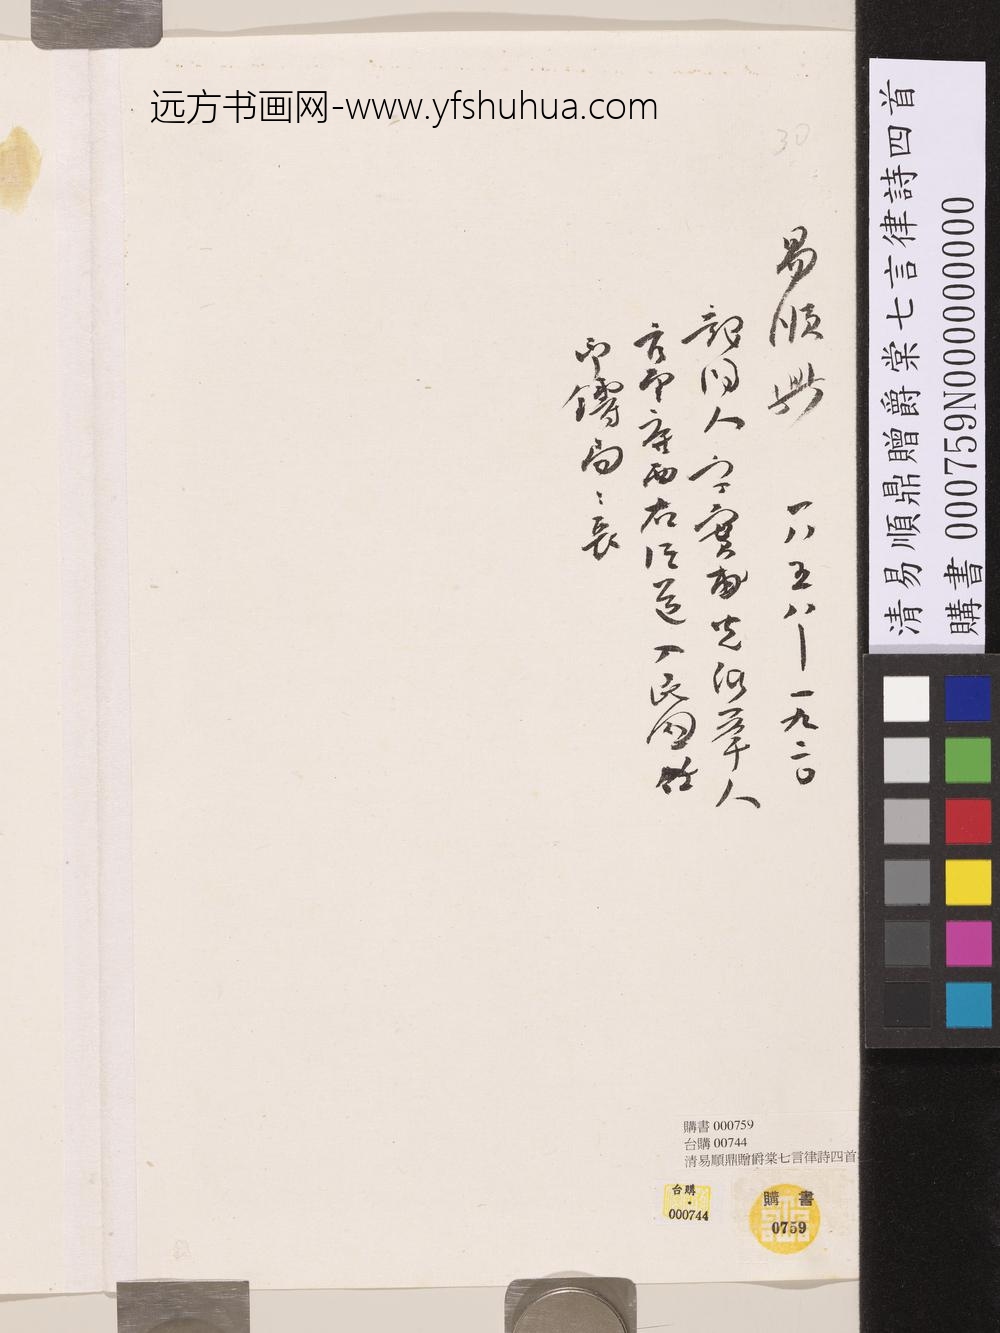 远方书画网-www.yfshuhua.com
30
清易順鼎贈爵棠七言律詩四首
購書 000759N000000000
易順鼎 一八五八—一九二〇
龍陽人字實甫光緒舉人
官廣西右江道入民國任
印鑄局〻長
購書 000759
台購 00744
清易順鼎贈爵棠七言律詩四首
台購
000744
購書
0759